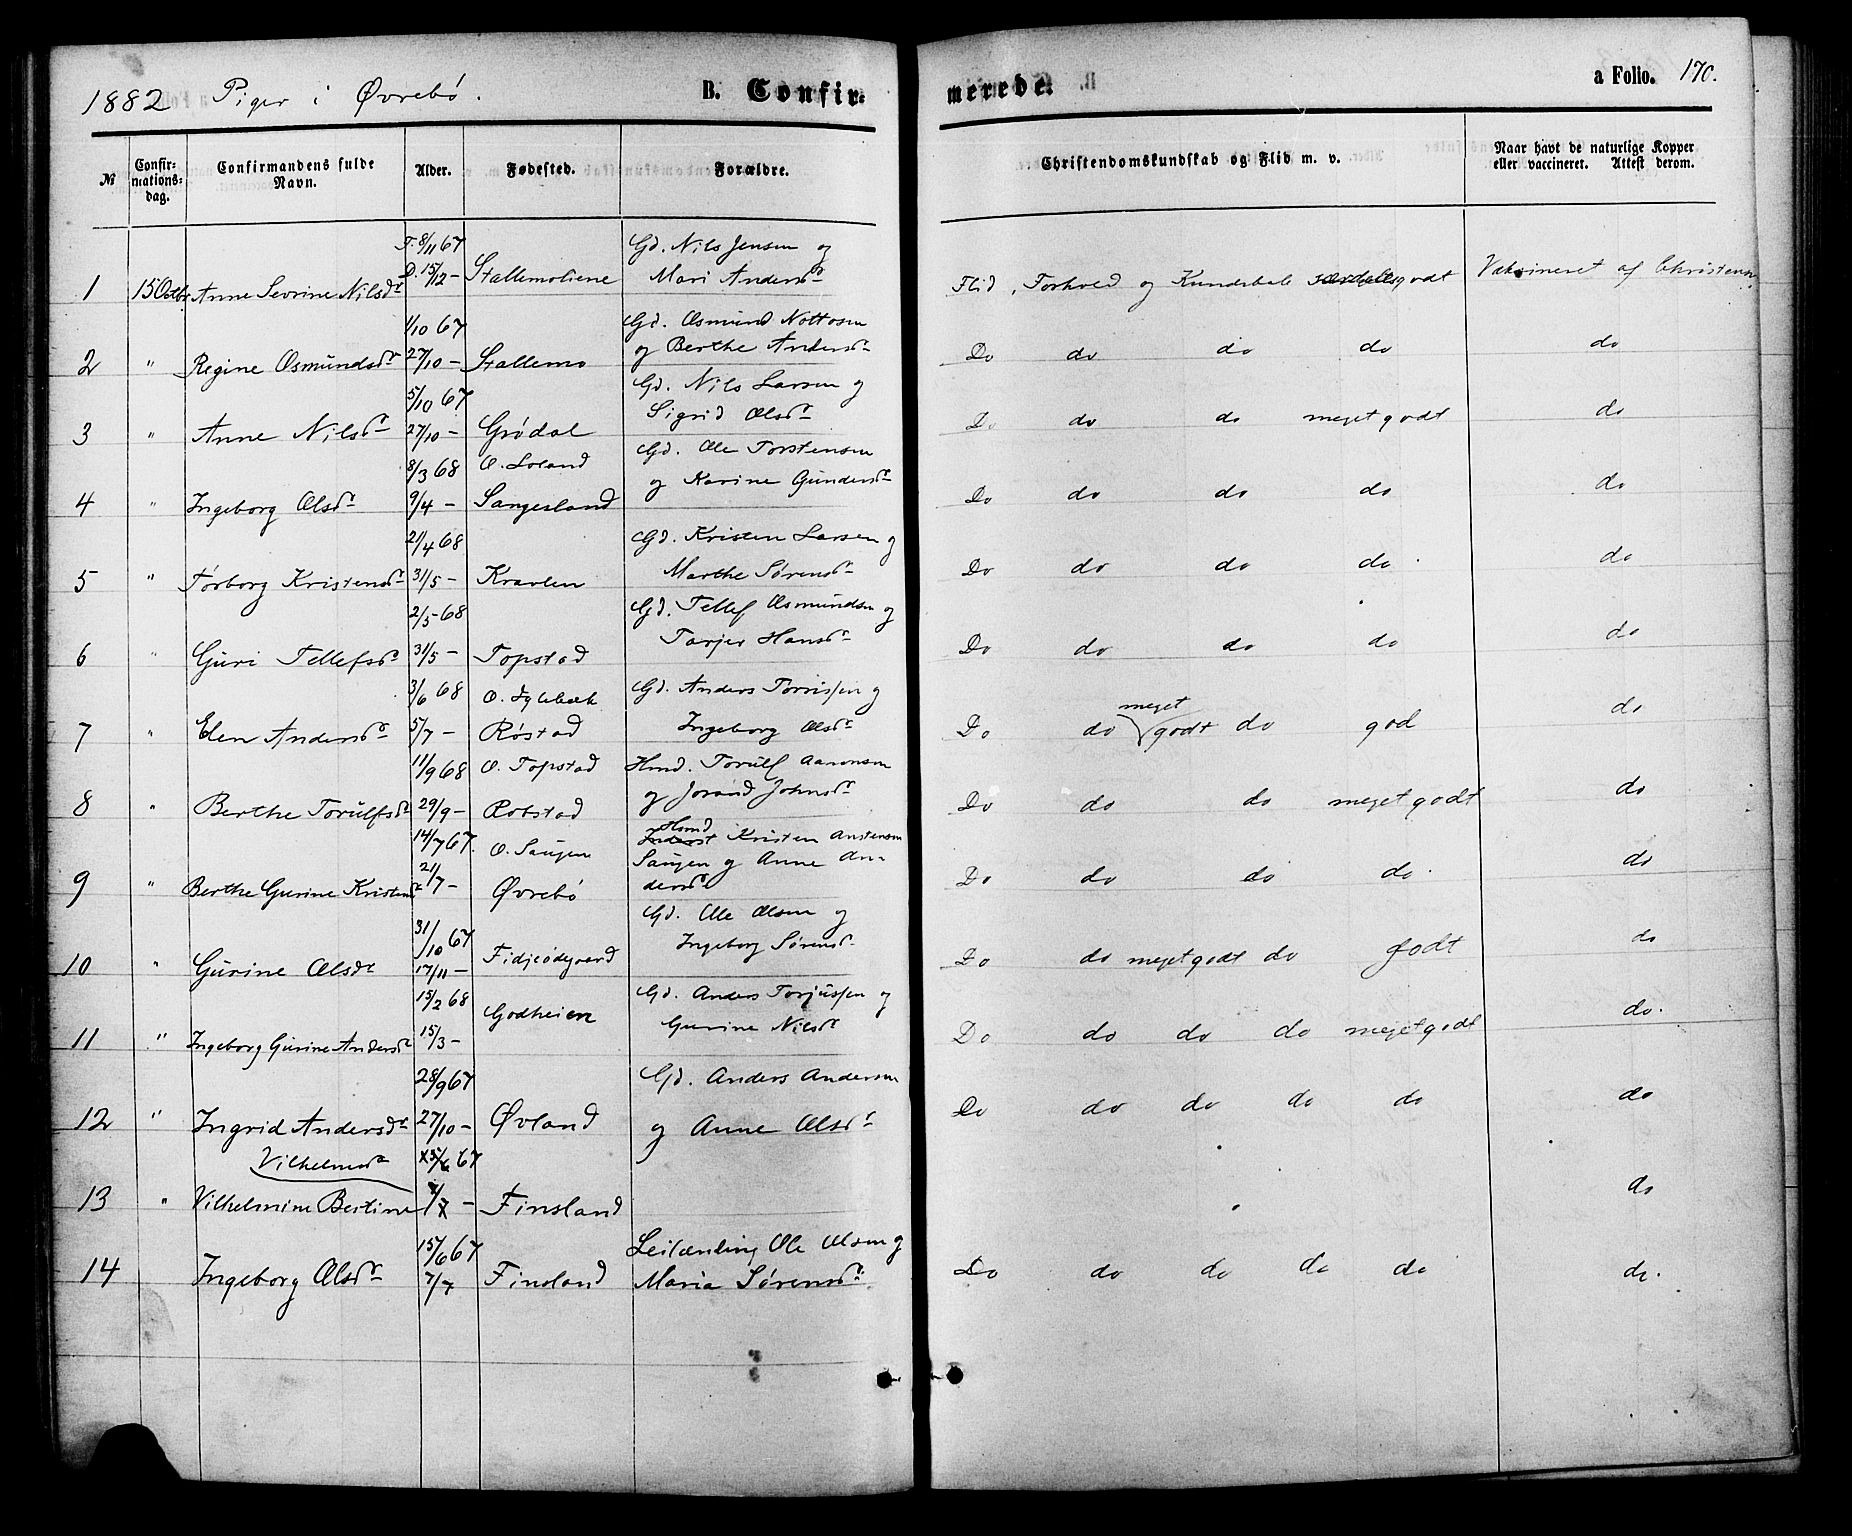 1882 Piger i Øvrebø. B. Confirmerede. a Folio. 170.
№ Confirmations-dag. Confirmandens fulde Navn. Alder. Fødested. Forældre. Christendomskundskab og Flid m. v. Naar havt de naturlige Kopper eller vaccineret. Attest derom.
F. 8/11 67 Gd. Nils Jensen og
1 15 Octbr Anne Sevrine Nilsdr D. 15/12 – Stallemoliene Mari Andersdr Flid, Forhold og Kundskab særdeles godt Vaksineret af Christensen
1/10 67 Gd. Osmund Nottosen
2 " Regine Osmundsdr 27/10 – Stallemo og Berthe Andersdr Do do do do do
5/10 67 Gd. Nils Larsen og
3 " Anne Nilsdr 27/10 – Grødal Sigrid Olsdr Do do do meget godt do
8/3 68 O. Loland Gd. Ole Torstensen
4 " Ingeborg Olsdr 9/4 – Sangesland og Karine Gundersdr Do do do do do
21/4 68 Gd. Kristen Larsen og
5 " Torborg Kristensdr 31/5 – Kravlen Marthe Sørensdr Do do do do do
2/5 – 68 Gd. Tellef Osmundsen og
6 " Guri Tellefsdr 31/5 – Topstad Tarjer Hansdr Do do do do do
3/6 68 Gd. Anders Torrisen og
7 " Elen Andersdr 5/7 – Røstad Ingeborg Olsdr Do do meget godt do god do
11/9 68 O. Topstad Hmd. Torulf Aaronsen
8 " Berthe Torulfsdr 29/9 – Robstad og Jorand Johnsdr Do do do meget godt do
14/7 67. O. Saugen Hmd Inderst Kristen Anstensen
Saugen og Anne An-
9 " Berthe Gurine Kristensdr 21/7 – Øvrebø dersdr Do do do do do
31/10 67 Gd. Ole Olsen og
10 " Gurine Olsdr 17/11 – Fidjeødegaard Ingeborg Sørensdr Do do meget godt do godt do
15/2 68 Godheien Gd. Anders Torjussen og
11 " Ingeborg Gurine Andersdr 15/3 – Gurine Nilsdr Do do do do meget godt do.
28/9 67 Gd. Anders Andersen
12 " Ingrid Andersdr 27/10 – Øvland og Anne Olsdr Do do do do do do
Vilhelmsdr 67
13 " Vilhelmine Bertine Finsland do
15/6 67 Leilænding Ole Olsen og
14 Ingeborg Olsdr 7/7 Finsland Maria Sørensdr. Do do do do do do.